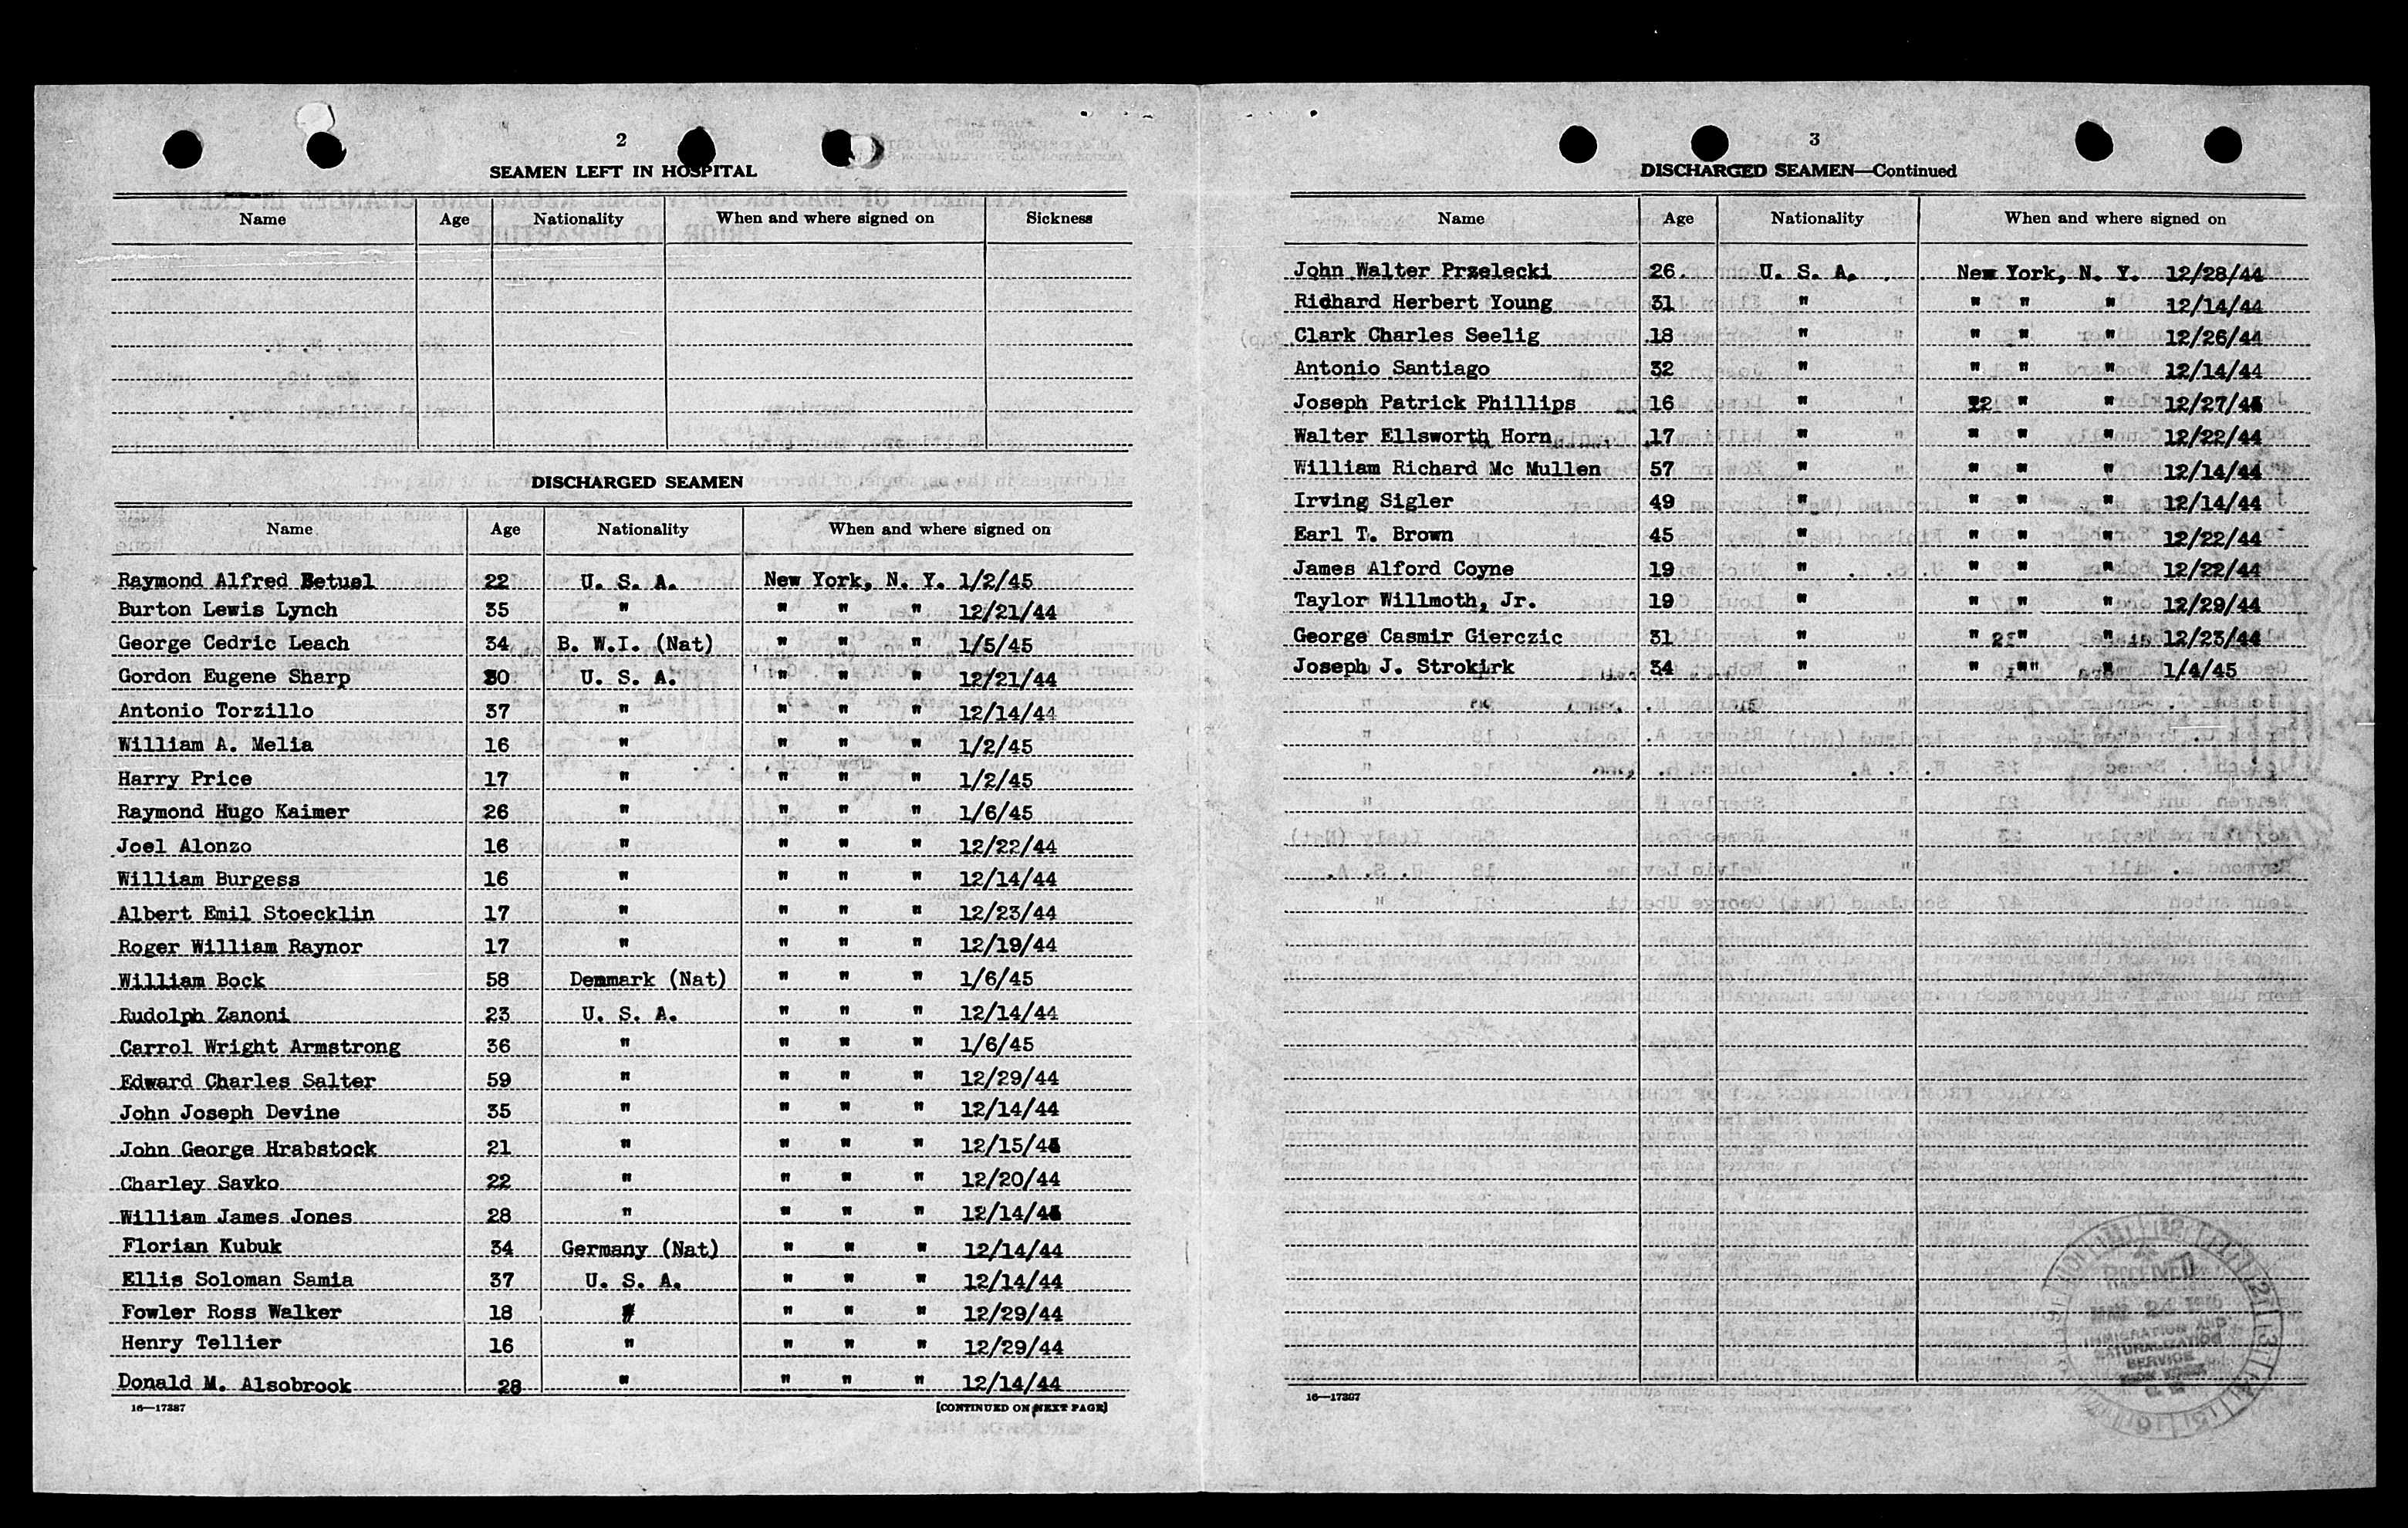 2
SEAMEN LEFT IN HOSPITAL
Name Age Nationality When and where signed on Sickness
DISCHARGED SEAMEN
Name Age Nationality When and where signed on
Raymond Alfred Betuel 22 U. S. A. New York, N. Y. 1/2/45
Burton Lewis Lynch 35 " " " " 12/21/44
George Cedric Leach 34 B. W.I. (Nat) " " " 1/5/45
Gordon Eugene Sharp 30 U. S. A. " " " 12/21/44
Antonio Torzillo 37 " " " " 12/14/44
William A. Melia 16 " " " " 1/2/45
Harry Price 17 " " " " 1/2/45
Raymond Hugo Kaimer 26 " " " " 1/6/45
Joel Alonzo 16 " " " " 12/22/44
William Burgess 16 " " " " 12/14/44
Albert Emil Stoecklin 17 " " " " 12/23/44
Roger William Raynor 17 " " " " 12/19/44
William Bock 58 Denmark (Nat) " " " 1/6/45
Rudolph Zanoni 23 U. S. A. " " " 12/14/44
Carrol Wright Armstrong 36 " " " " 1/6/45
Edward Charles Salter 59 " " " " 12/29/44
John Joseph Devine 35 " " " " 12/14/44
John George Hrabstock 21 " " " " 12/15/44
Charley Savko 22 " " " " 12/20/44
William James Jones 28 " " " " 12/14/44
Florian Kubuk 34 Germany (Nat) " " " 12/14/44
Ellis Soloman Samia 37 U. S. A. " " " 12/14/44
Fowler Ross Walker 18 " " " " 12/29/44
Henry Tellier 16 " " " " 12/29/44
Donald M. Alsobrook 28 " " " " 12/14/44
16—17387 [CONTINUED ON NEXT PAGE]
3
DISCHARGED SEAMEN—Continued
Name Age Nationality When and where signed on
John Walter Przelecki 26 U. S. A. New York, N. Y. 12/28/44
Ridhard Herbert Young 31 " " " " 12/14/44
Clark Charles Seelig 18 " " " " 12/26/44
Antonio Santiago 32 " " " " 12/14/44
Joseph Patrick Phillips 16 " " " 12/27/44
Walter Ellsworth Horn 17 " " " " 12/22/44
William Richard Mc Mullen 57 " " " " 12/14/44
Irving Sigler 49 " " " " 12/14/44
Earl T. Brown 45 " " " " 12/22/44
James Alford Coyne 19 " " " " 12/22/44
Taylor Willmoth, Jr. 19 " " " " 12/29/44
George Casmir Gierczic 31 " " " " 12/23/44
Joseph J. Strokirk 34 " " " " 1/4/45
16—17387
RECEIVED
IMMIGRATION AND
NATURALIZATION
SERVICE